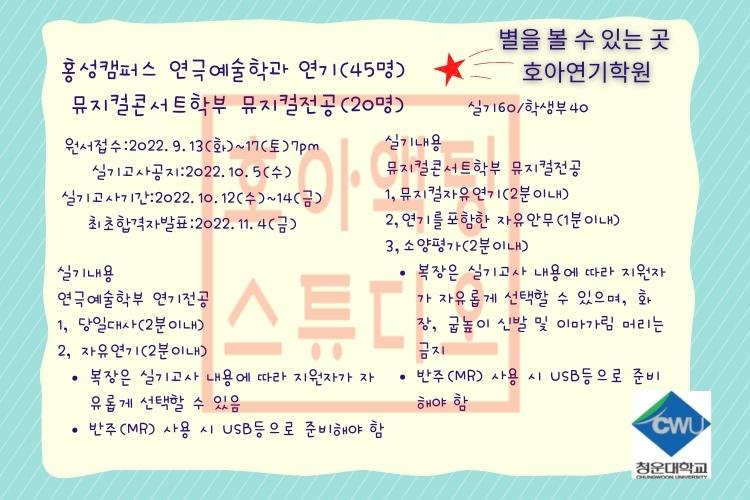 별을 볼 수 있는 곳
호아연기학원
홍성캠퍼스 연극예술학과 연기(45명)
뮤지컬콘서트학부 뮤지컬전공(20명)
실기60/학생부40
원서접수:2022. 9. 13(화)~17(토)7pm
실기고사공지:2022. 10. 5(수)
실기고사기간:2022. 10. 12(수)~14(금)
최초합격자발표:2022. 11. 4(금)
실기내용
연극예술학부 연기전공
1, 당일대사(2분이내)
2, 자유연기(2분이내)
• 복장은 실기고사 내용에 따라 지원자가 자
유롭게 선택할 수 있음
• 반주(MR) 사용 시 USB등으로 준비해야 함
실기내용
뮤지컬콘서트학부 뮤지컬전공
1, 뮤지컬자유연기(2분이내)
2, 연기를 포함한 자유안무(1분이내)
3, 소양평가(2분이내)
• 복장은 실기고사 내용에 따라 지원자
가 자유롭게 선택할 수 있으며, 화
장, 굽높이 신발 및 이마가림 머리는
금지
• 반주(MR) 사용 시 USB등으로 준비
해야 함
호아액팅
스튜디오
CWU
청운대학교
CHUNGWOON UNIVERSITY